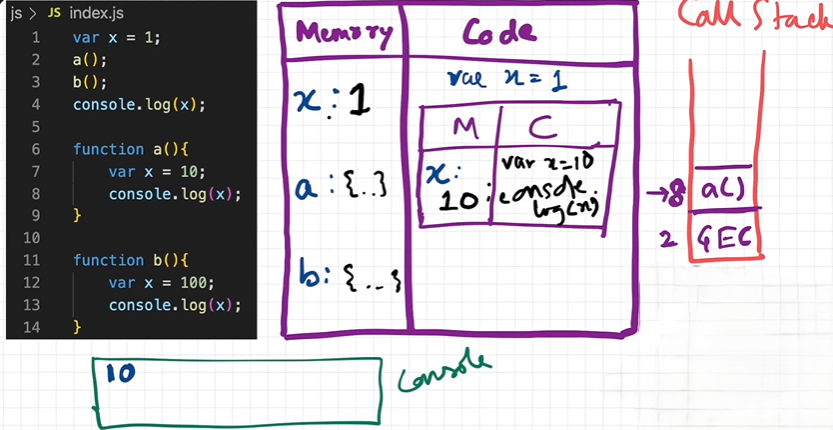 js > JS index.js
1 var x = 1;
2 a();
3 b();
4 console.log(x);
5
6 function a(){
7 var x = 10;
8 console.log(x);
9 }
10
11 function b(){
12 var x = 100;
13 console.log(x);
14 }
Memory Code
x: 1
a: {..}
b: {...}
var x = 1
M C
x: 10:
var x=10
console.
log(x)
Call Stack
→8 a()
2 GEC
10
Console